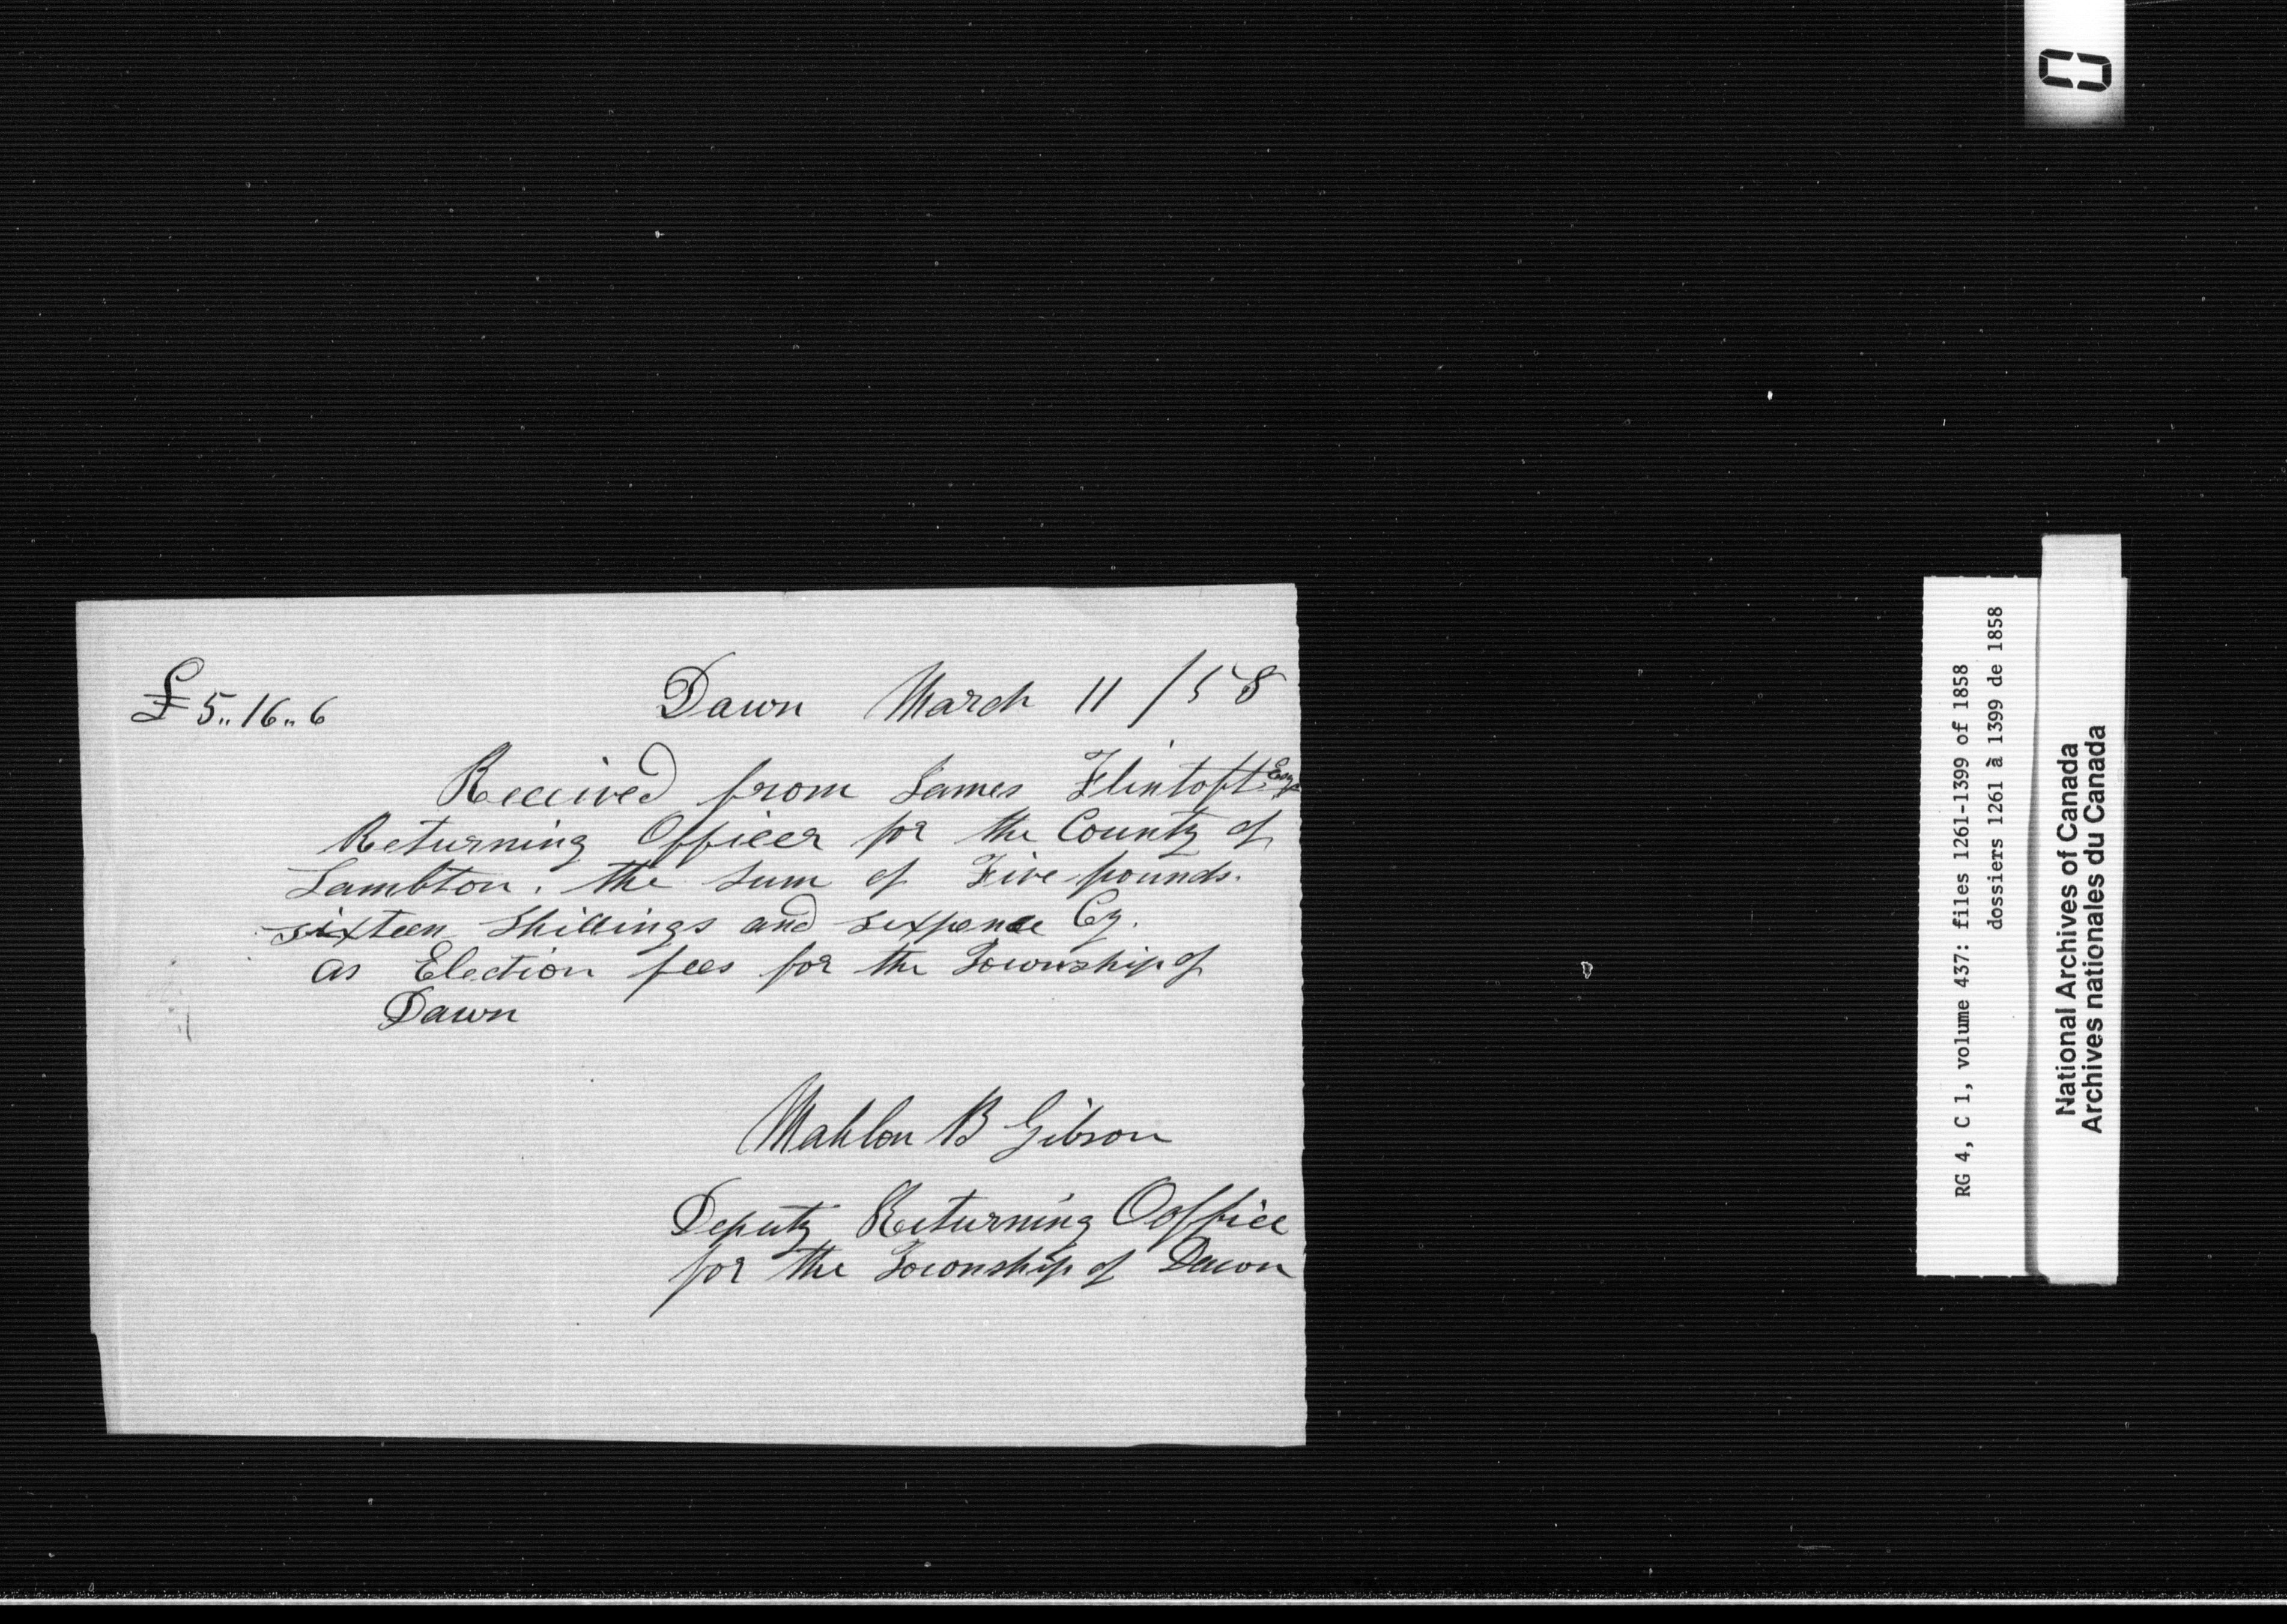 £5.. 16.. 6 Dawn March 11 / 58
Received from James Flintoft Esq
Returning Officer for the County of
Lambton. the sum of Five pounds.
sixteen shillings and sixpence Cy.
as Election fees for the Township of
Dawn
Mahlon B Gibson
Deputy Returning Oofficer
for the Township of Dawn
RG 4, C 1, volume 437: files 1261-1399 of 1858
dossiers 1261 à 1399 de 1858
National Archives of Canada
Archives nationales du Canada
0